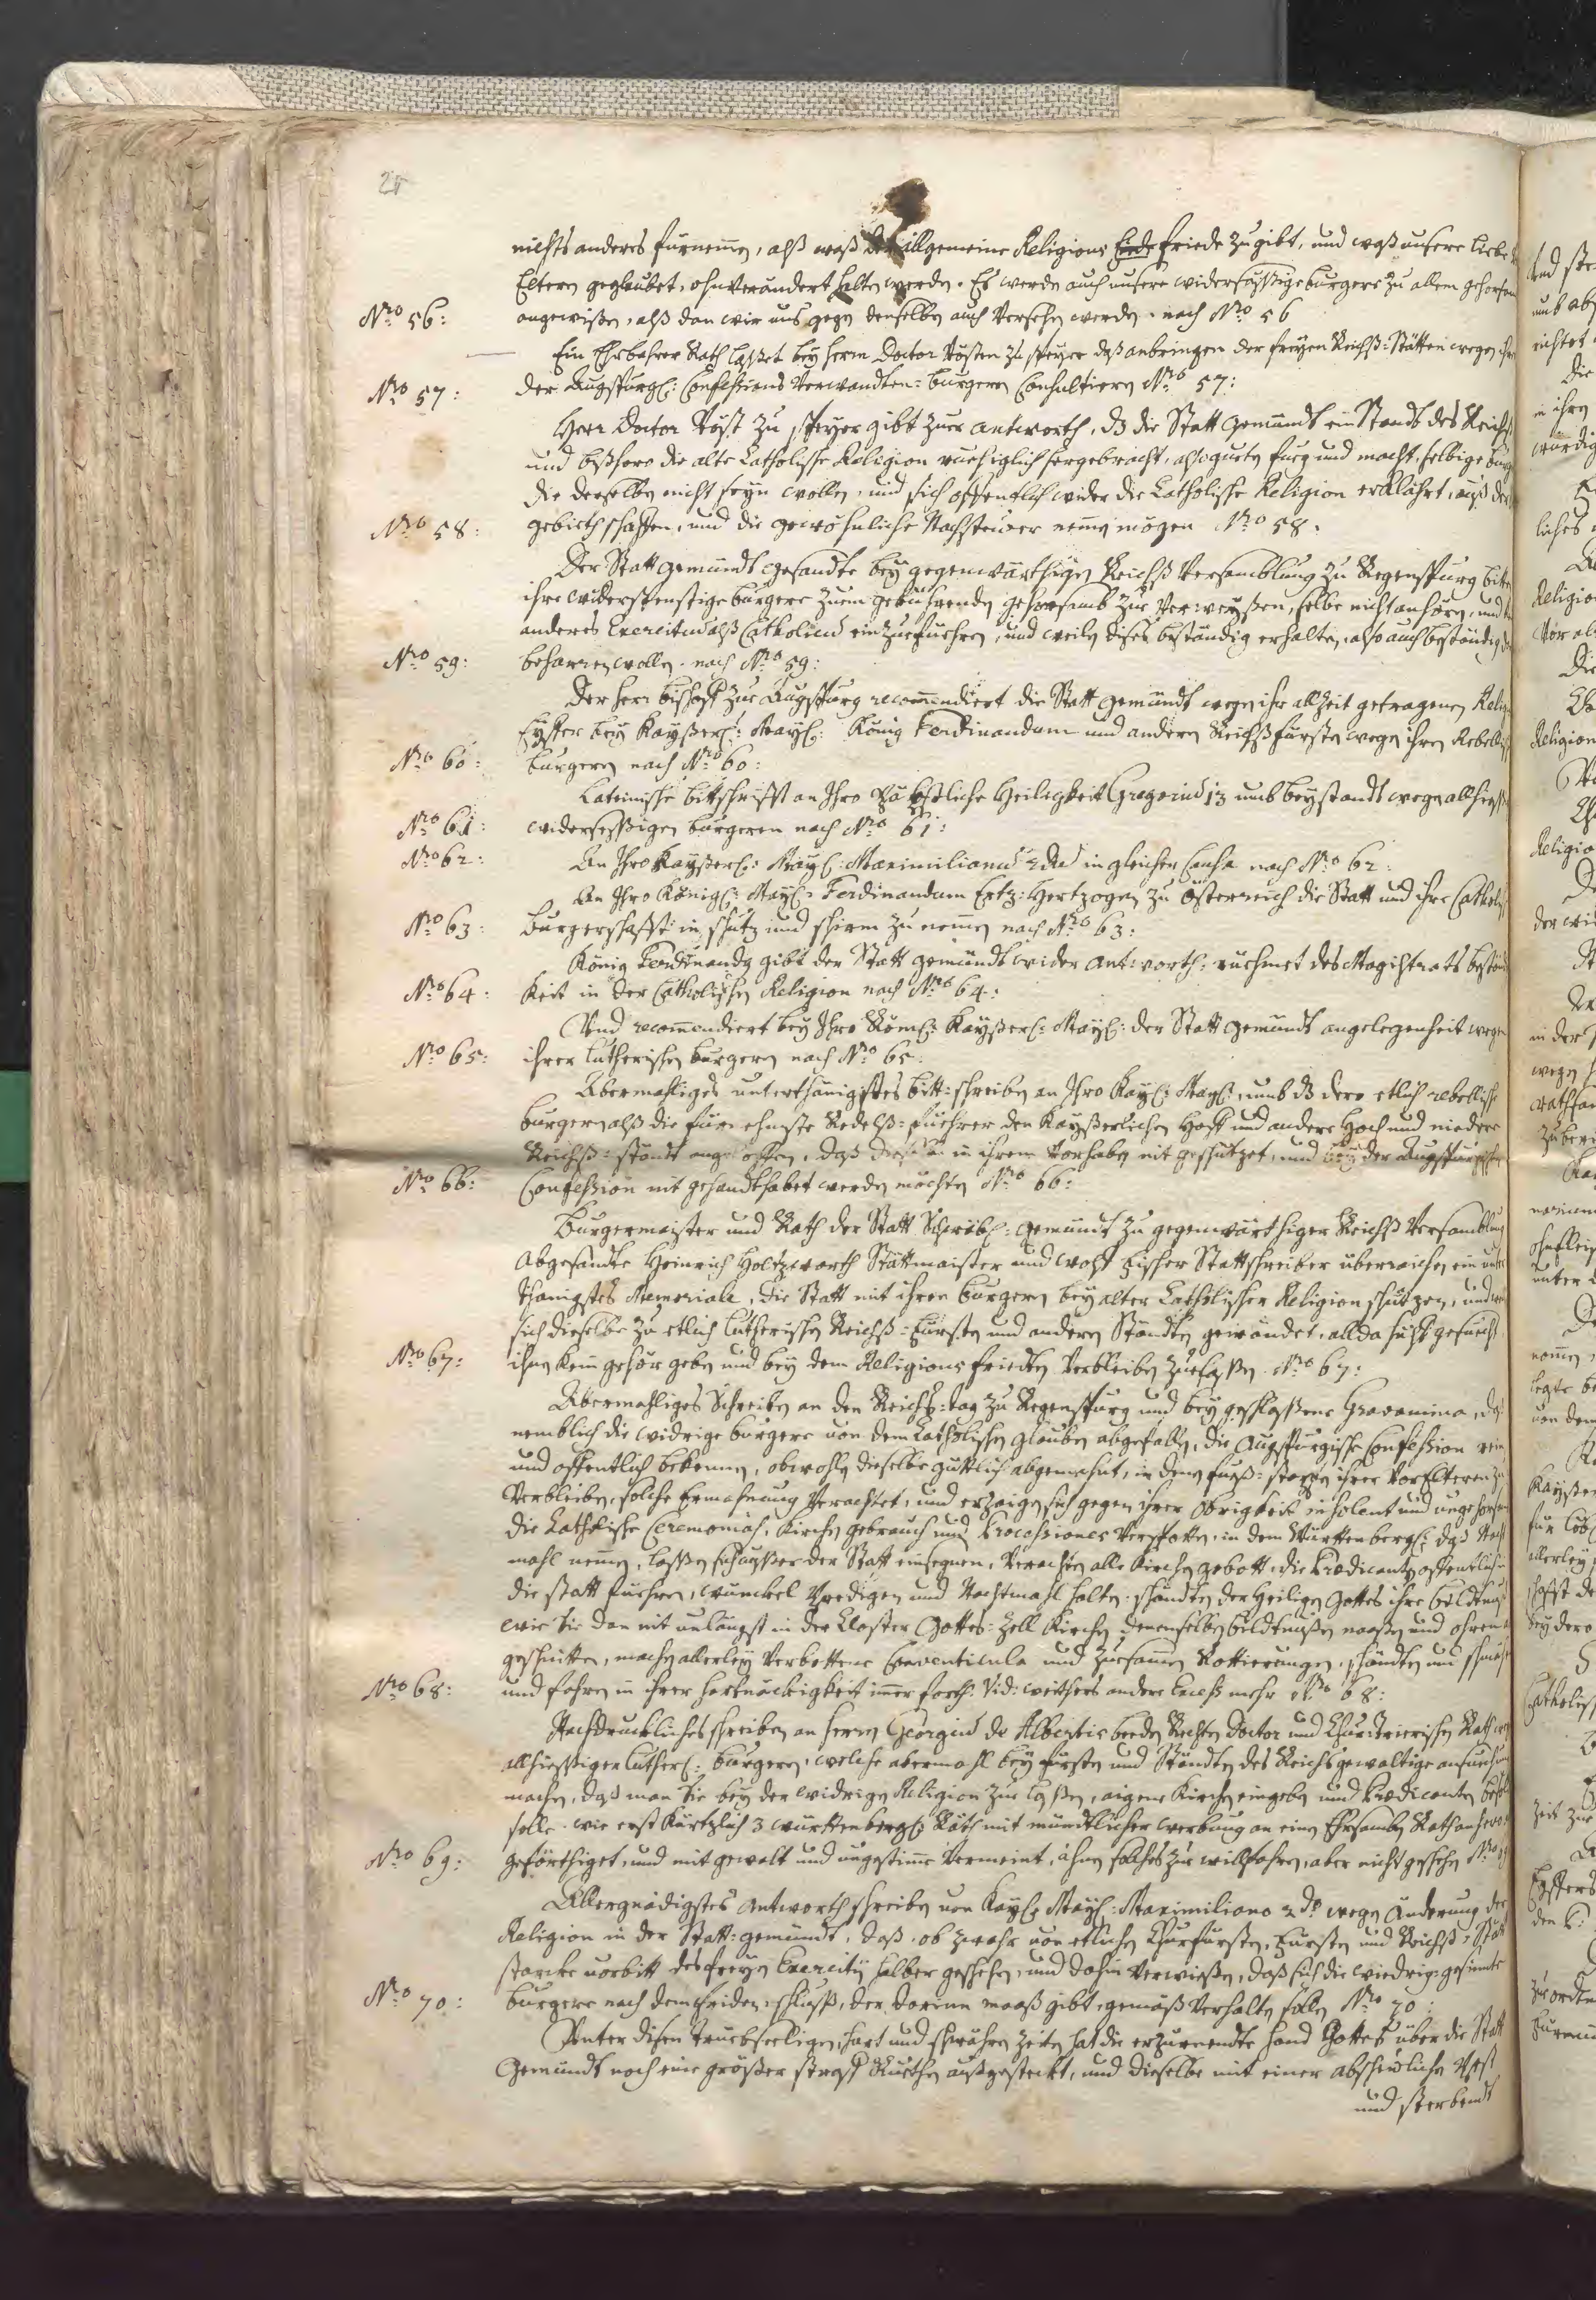 28
nichts anderes fürnemmen, alß waß der allgemeine Religions Friede zu gibt, und waß unsere liebe
Eltern geglaubet, ohnverändert halten werden. Es werden auch unsere widersässige burgere zu allem gehorsam
Nro 56: angewisen, alß dan wir uns gegen denselben auch versehen werden. nach Nro 56
Ein Ehrbahrer Rath lasset bey Herrn Doctor Vösten zu Speyer daß anbringen der freyen Reichß-Stätten wegen ihr
Nro 57: der Augspurgl: Confessions Verwandten burgern Consultiern Nro 57:
Herr Doctor Vöst zu Speyer gibt zur antworth, dz die Statt Gemündt ein Standt des Reichs
und bißhero die alte Catholische Religion ruehiglich hergebracht, also guetn fueg und macht, selbige burg
die derselben nicht seyn wollen, und sich offentlich wider die Catholische Religion erklährt, auß dem
Nro 58: gebieth schaffen, und die gewohnliche Nachsteuer nemmen mögen Nro 58:
Der Statt Gemündt gesandte bey gegenwärthigen Reichß Versamblung zu Regenspurg bitten
ihre widerspenstige burgere zuem gebührenden gehorsamb zue verweysen, selbe nicht anhören, und
anderes Exercitium alß Catholicum einzuefuehren, und weilen dises beständig erhalten, also auch beständig
Nro 59: beharren wollen. nach Nro 59:
Der Herr bischoff zue Augspurg recommendiert die Statt Gemündt wegen ihr allzeit getragenen Relig
Eyffer bey Kayserl: Mayl: König Ferdinandum und andern Reichßfürsten wegen ihren Rebellisch
Nro 60: burgeren nach Nro 60:
Lateinische bittschrifft an Ihro Päbstliche Heiligkeit Gregorius 13 umb beystandt wegen allhiesig
Nro 61: widersessigen burgeren nach Nro 61:
Nro 62: An Ihro Kayserl: Mayl: Maximilianus 2dus in gleicher Causa nach Nro 62:
An Ihro Königl: Mayl: Ferdinandum Ertz-Hertzogen zu Österreich die Statt und ihre Catholis
Nro 63: burgerschafft in schutz und schirm zu nemmen nach Nro 63:
König Ferdinandg gibt der Statt Gemündt wider antworth: ruehmet des Magistrats beständ
Nro 64: keit in der Catholischen Religion nach Nro 64:
Und recommendiert bey Ihro Röml: Kayserl: Mayl: der Statt Gemündt angelegenheit wegen
Nro 65: ihrer lutherischen burgern nach Nro 65:
Abermahliges unterthänigistes bitt-schreiben an Ihro Kayl: Mayl:, umb dz dero etlich rebellische
burgern alß die fürnehmste Redelß-fuehrer den Kayserlichen Hoff und andere Hoch und nidere
Reichß-ständt angeloffen, daß dieselbe in ihrem Vorhaben nit geschützet, und bey der Augspurgische
Nro 66: Confession nit gehandthabet werden möchten Nro 66:
Burgermaister und Rath der Statt Schwäbl: Gemündt zu gegenwärthiger Reichß Versamblung
Abgesandte Heinrich Holtzwarth Stättmaister und Wolff Fischer Stattschreiber überraichen ein unter
thänigstes Memoriale, die Statt mit ihren burgern bey alter Catholischer Religion schützen, und
sich dieselbe zu etlich lutherischen Reichß-Fürsten und anderen Ständten gewändet, allda hülff gesuecht
Nro 67: ihnen kein gehör geben und bey dem Religions frieden verbleiben zue lassen. Nro 67:
Abermahliges Schreiben an den Reichs-tag zu Regenspurg und beygeschlossene Gravamina, daß
nemblich die widrige burgere von dem Catholischen glauben abgefallen, die Augspurgische Confession rein
und offentlich bekennen, obwohlen dieselbe güttlich abgemahnt, in denen fueß-stapffen ihrer Vor Elteren zu
verbleiben, solche Ermahnung verachtet, und erzaigen sich gegen ihrer Obrigkeit insolent und ungehorsam
die Catholische Ceremonias, Kirchen gebrauch und Processiones verspotten, in dem Würtenbergl: das Nacht
mahl nemmen, lassen sich ausser der Statt einsegnen, verachten alle Kirchen gebott, die Prædicanten offentlich in
die statt fuehren, wünckel Predigen und Nachtmahl halten, schändten der Heiligen Gottes ihre bildtnus
wie sie dan nit unlängst in der Closter Gottes-Zell Kirchen denenselben bildtnussen naasen und ohren
geschnitten, machen allerley verbottene Conventicula und zuesammen Rottierungen, schändten und schmähen
Nro 68: und fahren in ihrer hartnäckigkeit immer forth. Vid: weithers andere Excess mehr Nro 68:
Nachdruckliches schreiben an Herrn Georgius de Albertis beeder Rechten Doctor und Churtrierischen Rath wegen
allhiessiger luther: burgern, welche abermahl bey Fürsten und Ständten des Reichs gewaltige ansuchung
machen, daß man sie bey der widrigen Religion zue lassen, aigene Kirchen eingeben und Prædicanten
solle. wie erst kürtzlich 3 würtenbergl: Räth mit mündtlicher werbung an einen Ehrsamben Rath anhero
Nro 69: geförthiget, und mit gewalt und ungestimm vermeint, ihnen solches zue willfahren, aber nicht geschehen Nro 69
Allergnädigstes antworth schreiben von Kayl: Mayl: Maximiliano 2do wegen änderung der
Religion in der Statt-Gemündt, daß, ob zwahr von etlichen Churfürsten, Fürsten und Reichß-Stätt
starcke vorbitt des freyen Exercitij halber geschehen, und dahin verwiesen, daß sich die wiedrig gesinnte
Nro 70: burgere nach dem friden-schluß, der darinn maaß gibt, gemäß verhalten sollen Nro 70:
Unter disen truebseeligen, hart und schwähren zeiten hat die erzürnendte hand Gottes über die Statt
Gemündt noch eine größer straff Ruethen außgesteckt, und dieselbe mit einer abscheulichen Pest
und sterbendt